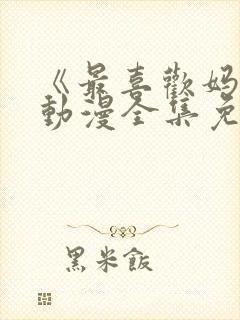 《最喜歡妈
動漫全集免
黑米飯